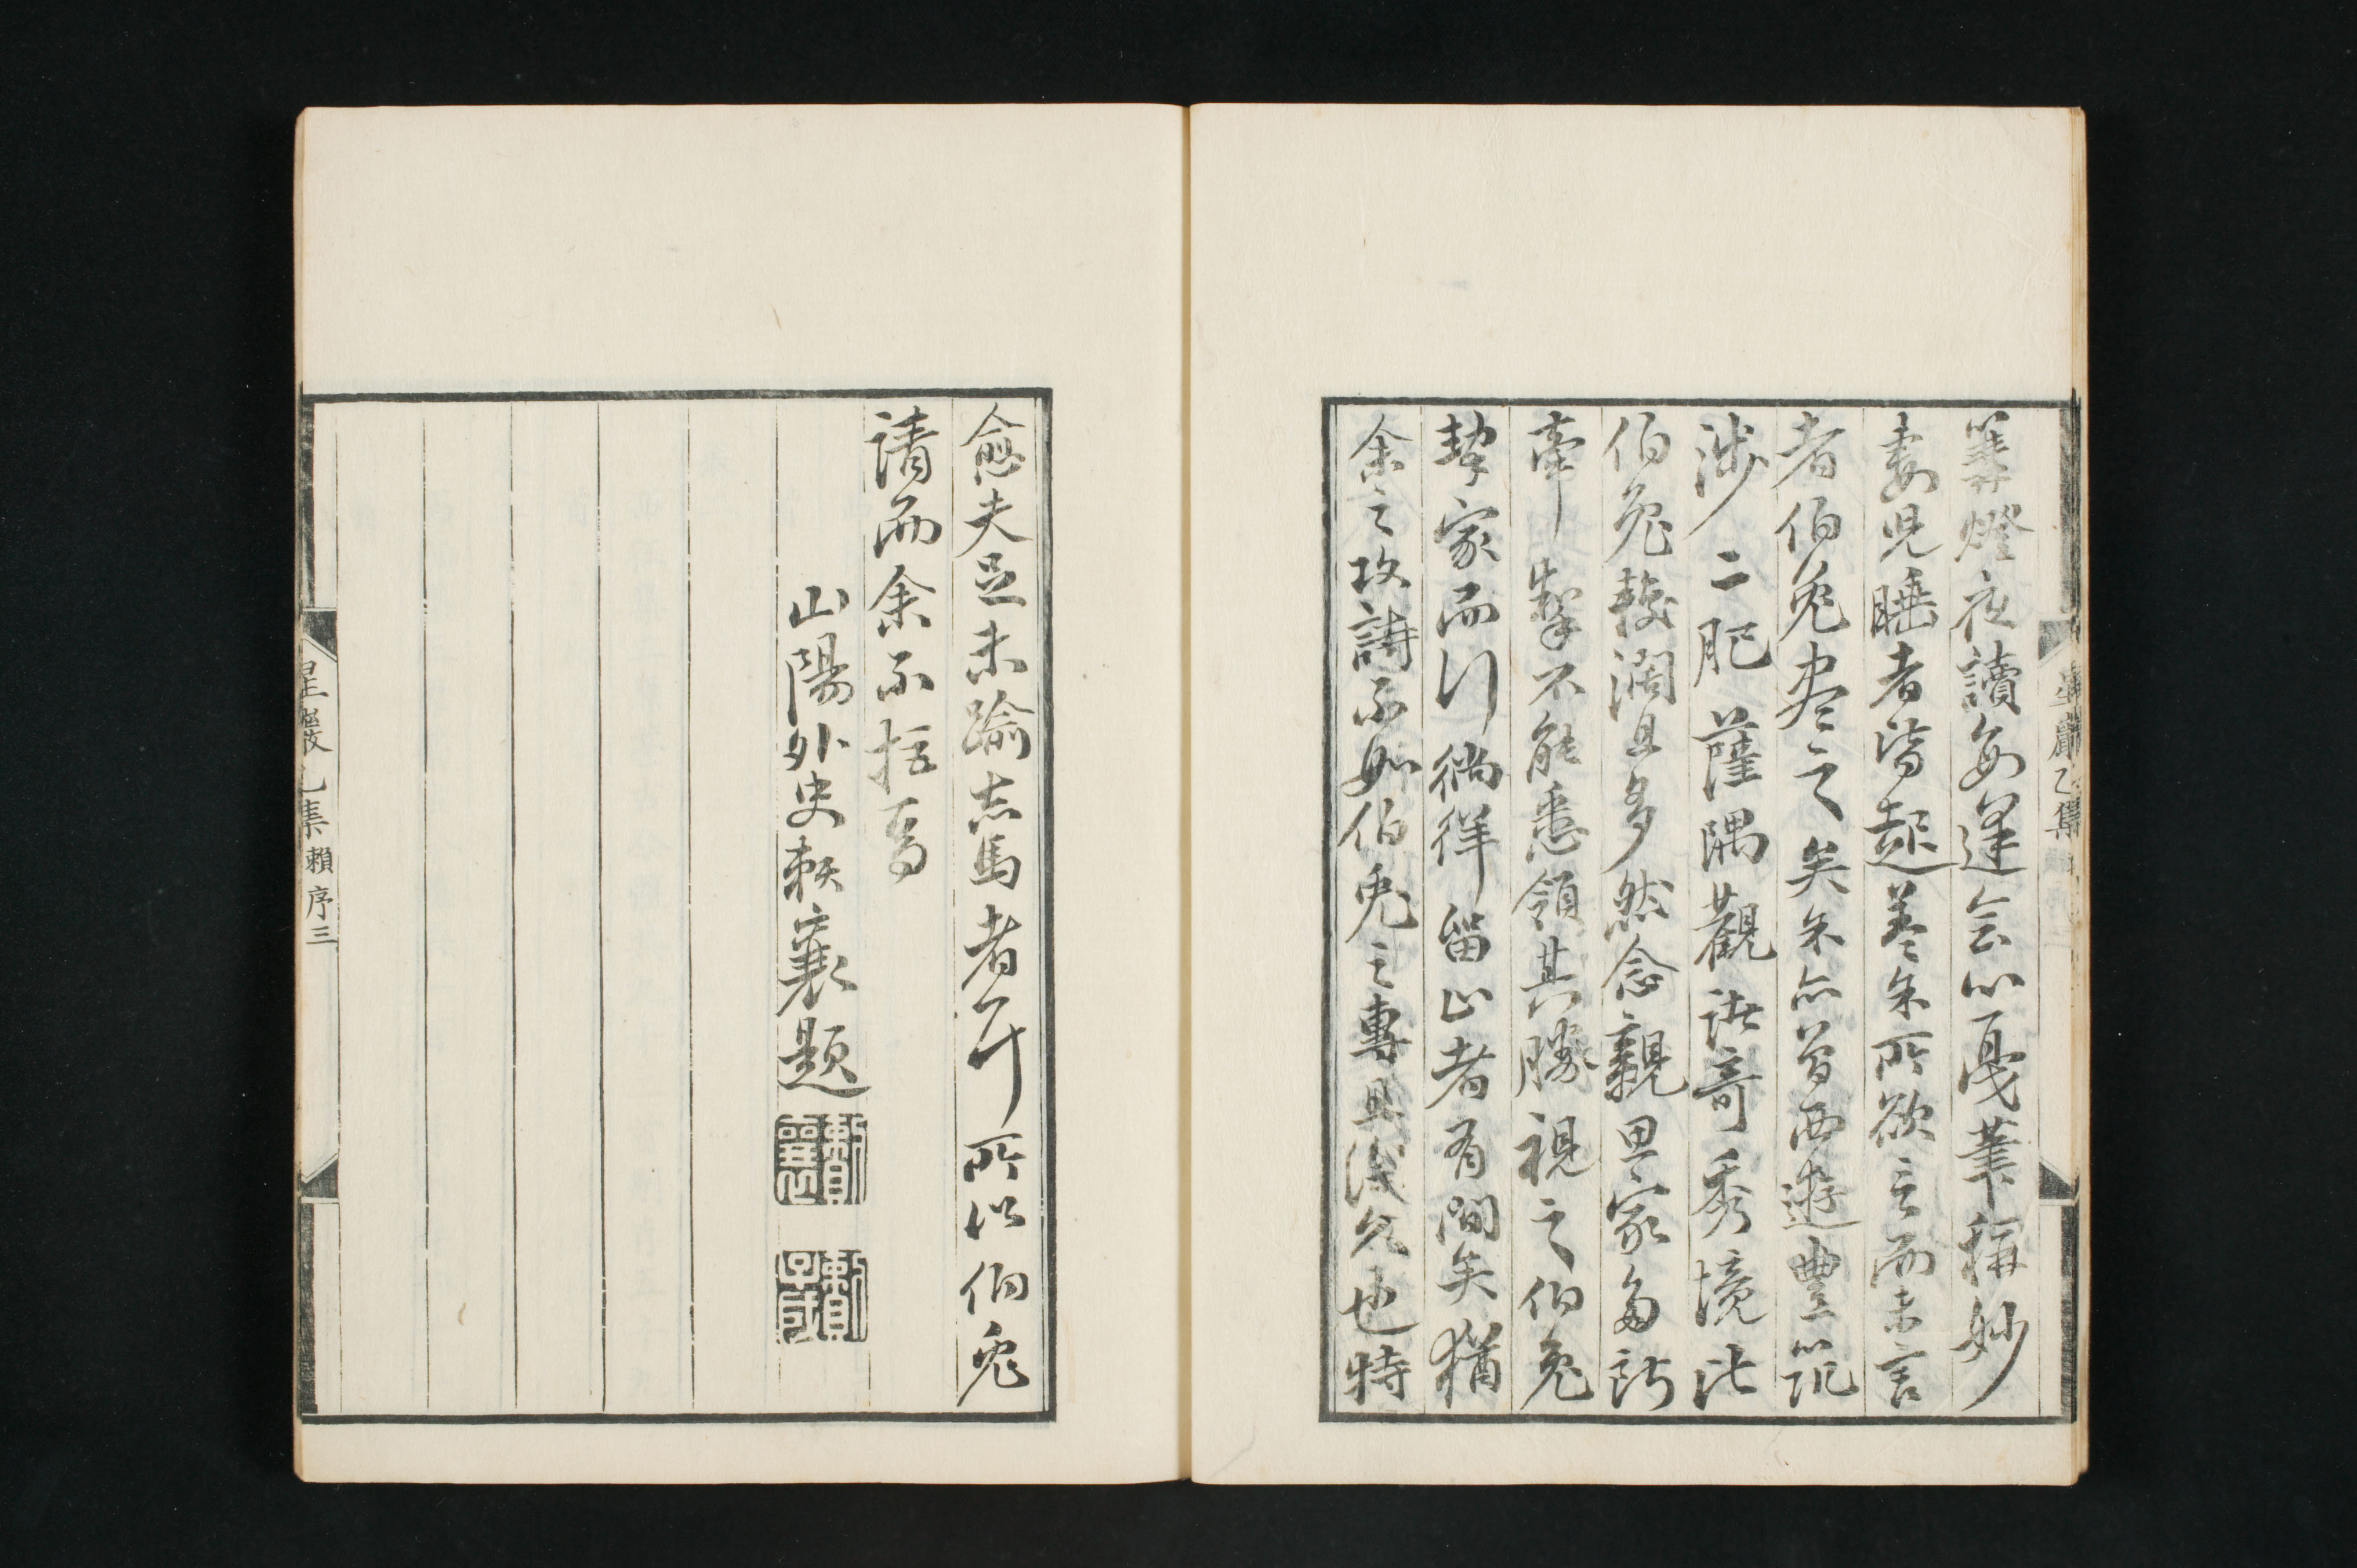 篝燈夜讀每逢会心戞筆称妙
妻児睡者皆起蓋余所欲言而未言
者伯兔尽之矣余亦曽西遊豊筑
渉二肥薩隅觀諸奇秀境比
伯兔較濶且多然念親思家多所
牽掣不能悉領其勝視之伯兔
挈家而行徜徉留止者有間矣猶
余之攻詩不如伯兔之專且深久也特
愈夫足未踰志馬者耳所以伯兔
請而余不拒焉
山陽外史頼襄題
頼襄
頼子成
星巖乙集 頼序三
星巖乙集